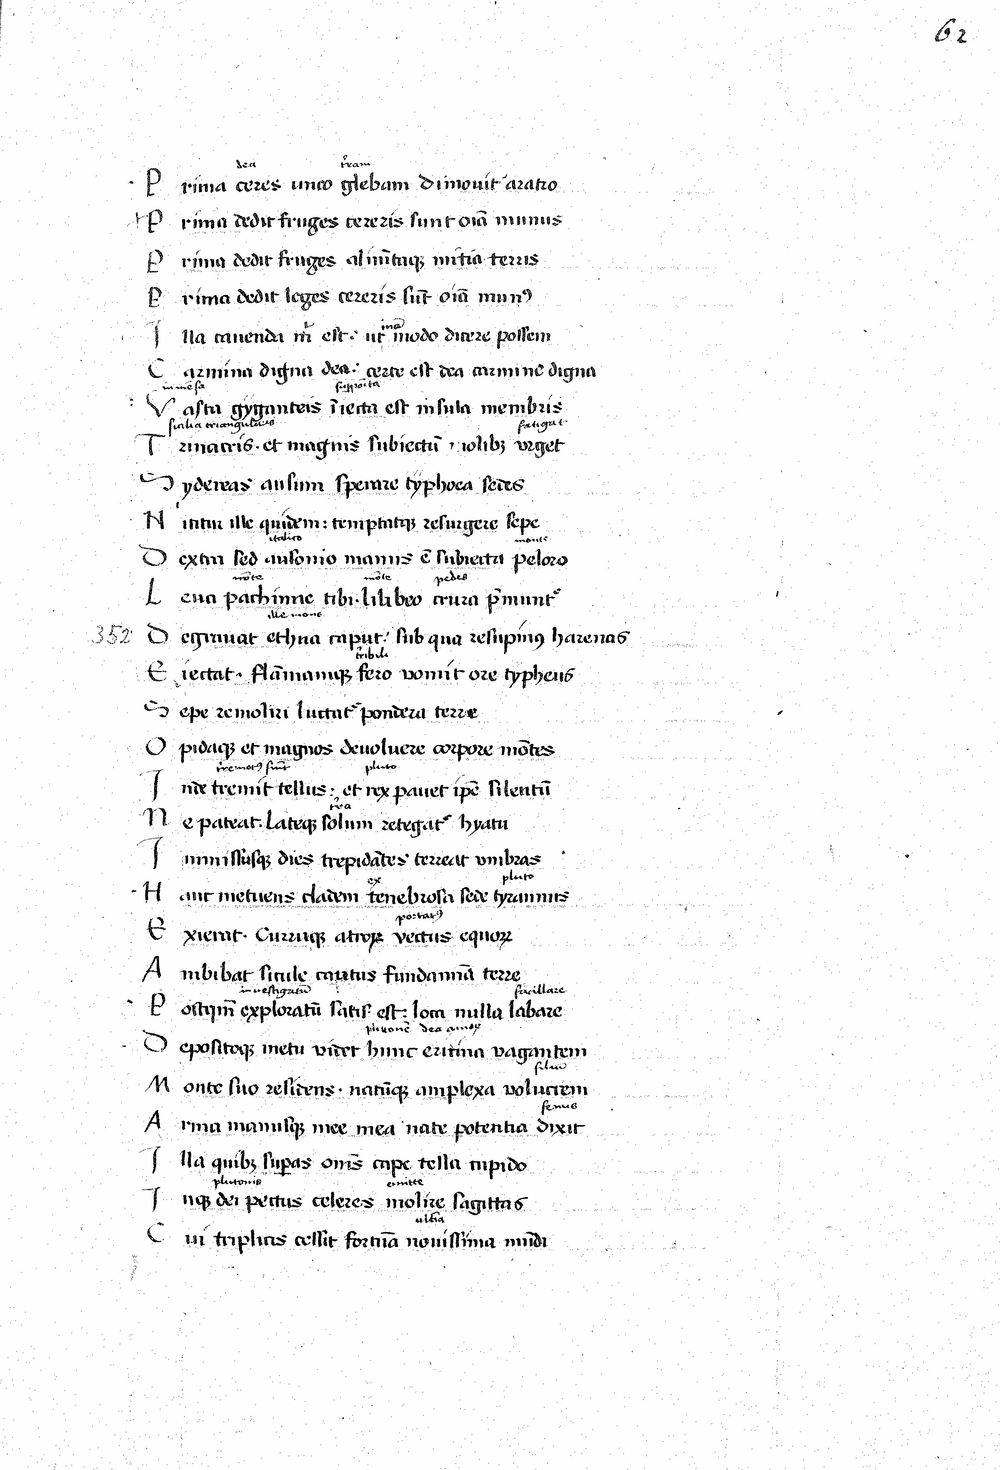 62
dea t̄ram
P rima ceres unco glebam dimouit aratro
P rima dedit fruges cereris sunt oīa munus
P rima dedit fruges alim̄taq; mitia terris
P rima dedit leges cereris sūt oīa munꝰ
I lla canenda m̄ est: ut modo dicere possem
C armina digna dea: certe est dea carmine digna
inmēsa suppoīta
V asta gyganteis īiecta est insula membris
sicilia triangularis fatigat
T rinacris. et magnis subiectū molib; urget
S ydereas ausum sperare typhoea sedes
N ititur ille quidem: temptatq; resurgere sepe
italico monte
D extra sed ausonio manus ē subiecta peloro
mōte mōte pedes
L eua pachinne tibi. lilibeo crura p̄munt᷑
ille mons
352 D egrauat ethna caput: sub qua resupinꝰ harenas
t̄ribili
E iectat. flāmamq; fero uomit ore typheus
S epe remoliri luctat᷑ pondera terre
O pidaq; et magnos deuoluere corpore mōtes
t̄remotꝰ sunt pluto
I nde tremit tellus: et rex pauet ipē silentū
t̄ra
N e pateat. lateq; solum retegat᷑ hyatu
I mmissusq; dies trepidātes terreat umbras
ex pluto
H anc metuens cladem tenebrosa sede tyrannus
portatꝰ
E xierat. Curruq; atroꝝ uectus equoꝝ
A mbibat sicule cautus fundamīa terre
inuestigatū facillare
P ostqm̄ exploratū satis est: loca nulla labare
plutonē dea amoꝝ
D epositoq; metu uidet hunc ericina uagantem
filiū
M onte suo residens. natūq; amplexa uolucrem
uenus
A rma manusq; mee mea nate potentia dixit
I lla quib; supas omīs cape tella cupido
plutonis emitte
I nq; dei pectus celeres molire sagittas
ultīa
C ui triplicis cessit fortūa nouissima mūdi